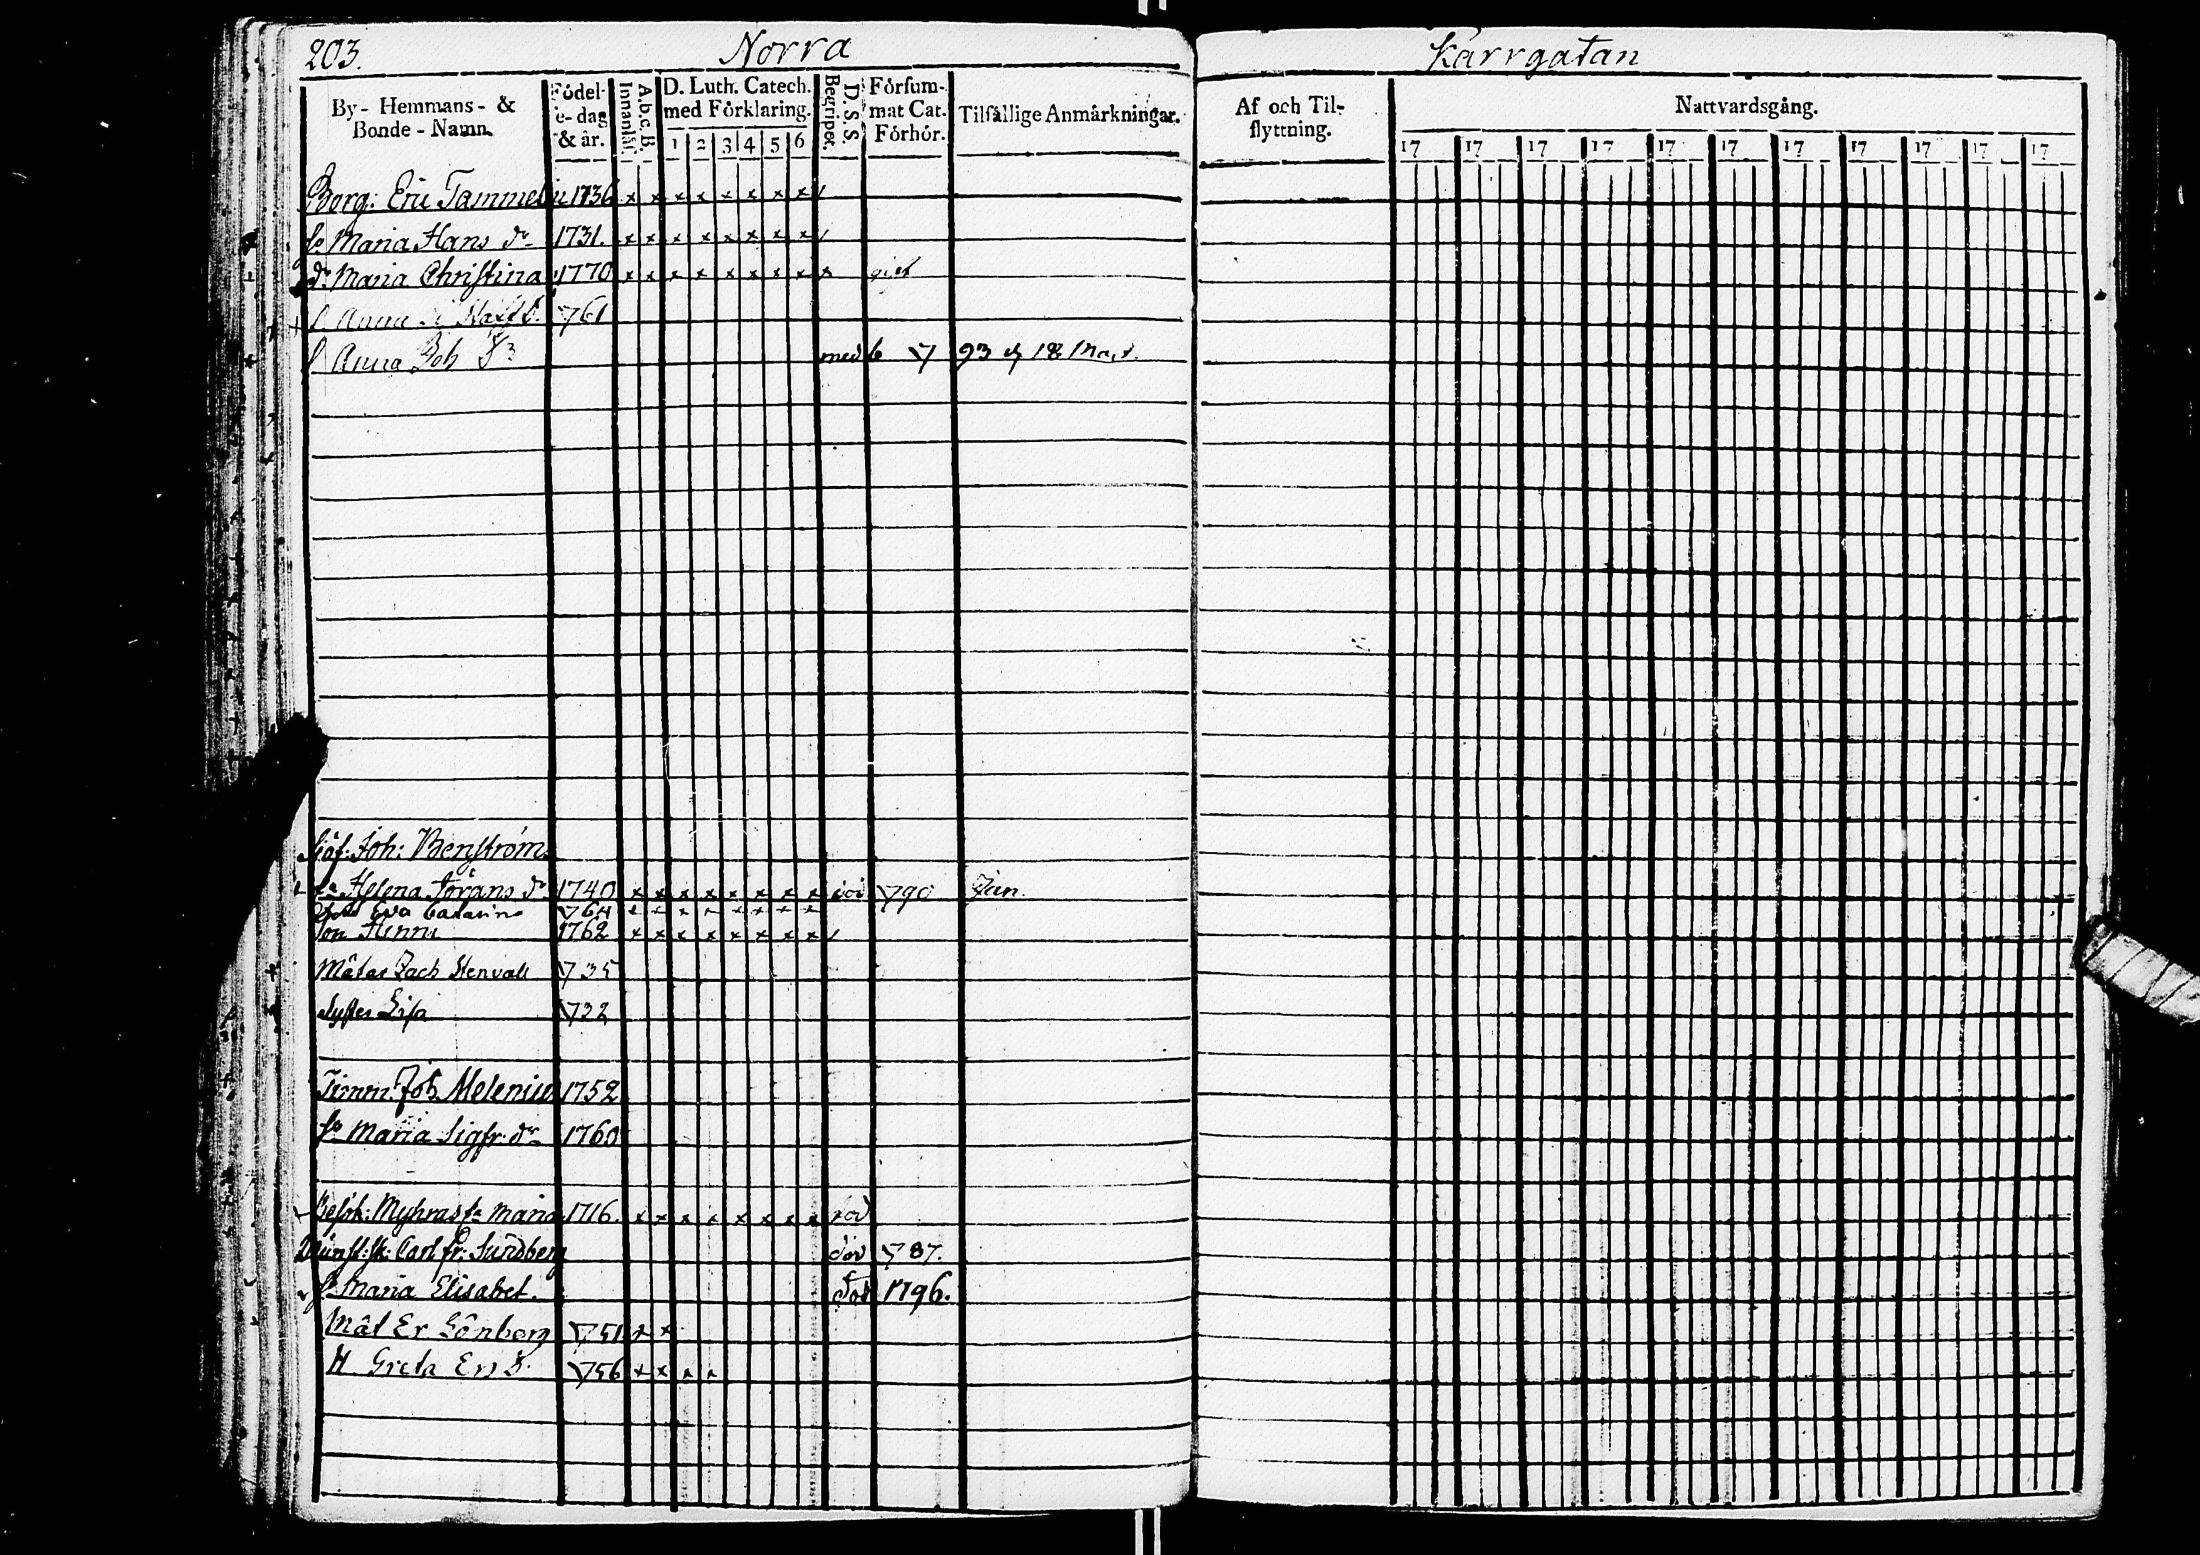 203. Norra Kärrgatan
By- Hemmans- & Bonde-Namn.
Födel-e-dag & år.
Innanläs.
A.b.c B.
D. Luth. Catech. med Förklaring.
1 2 3 4 5 6
Begripet.
D. S. S.
Försum-mat Cat. Förhör.
Tilfällige Anmärkningar.
Af och Til-flyttning.
Nattvardsgång.
17 17 17 17 17 17 17 17 17 17 17
Borg: Eric Tammelin 1736 x x x x x x x x /
h: Maria Hans dr 1731. x x x x x x x x /
dr Maria Christina 1770 x x x x x x x x x gift
Anna 761
Anna Joh med b 93 d 18 Mart.
Sjöf: Joh: Benström
h: Helena Jörans dr 1740 x x x x x x x x död 790 Jun.
Eva Catarina 764 x x x x x x x x
Son Henric 1762 x x x x x x x x /
Mätar Zach Stenvall 735
Syster Lisa 722
Timm: Joh Melenius 1752
h: Maria Sigfr: dr 1760
Besök: Myhras h: Maria 1716. x x x x x x x x död
Münst:sk: Carl fr: Sundberg död 787.
h: Maria Elisabet. död 1796.
Mät Er Lönberg 751 x x
H Greta Ers d. 756 x x x x